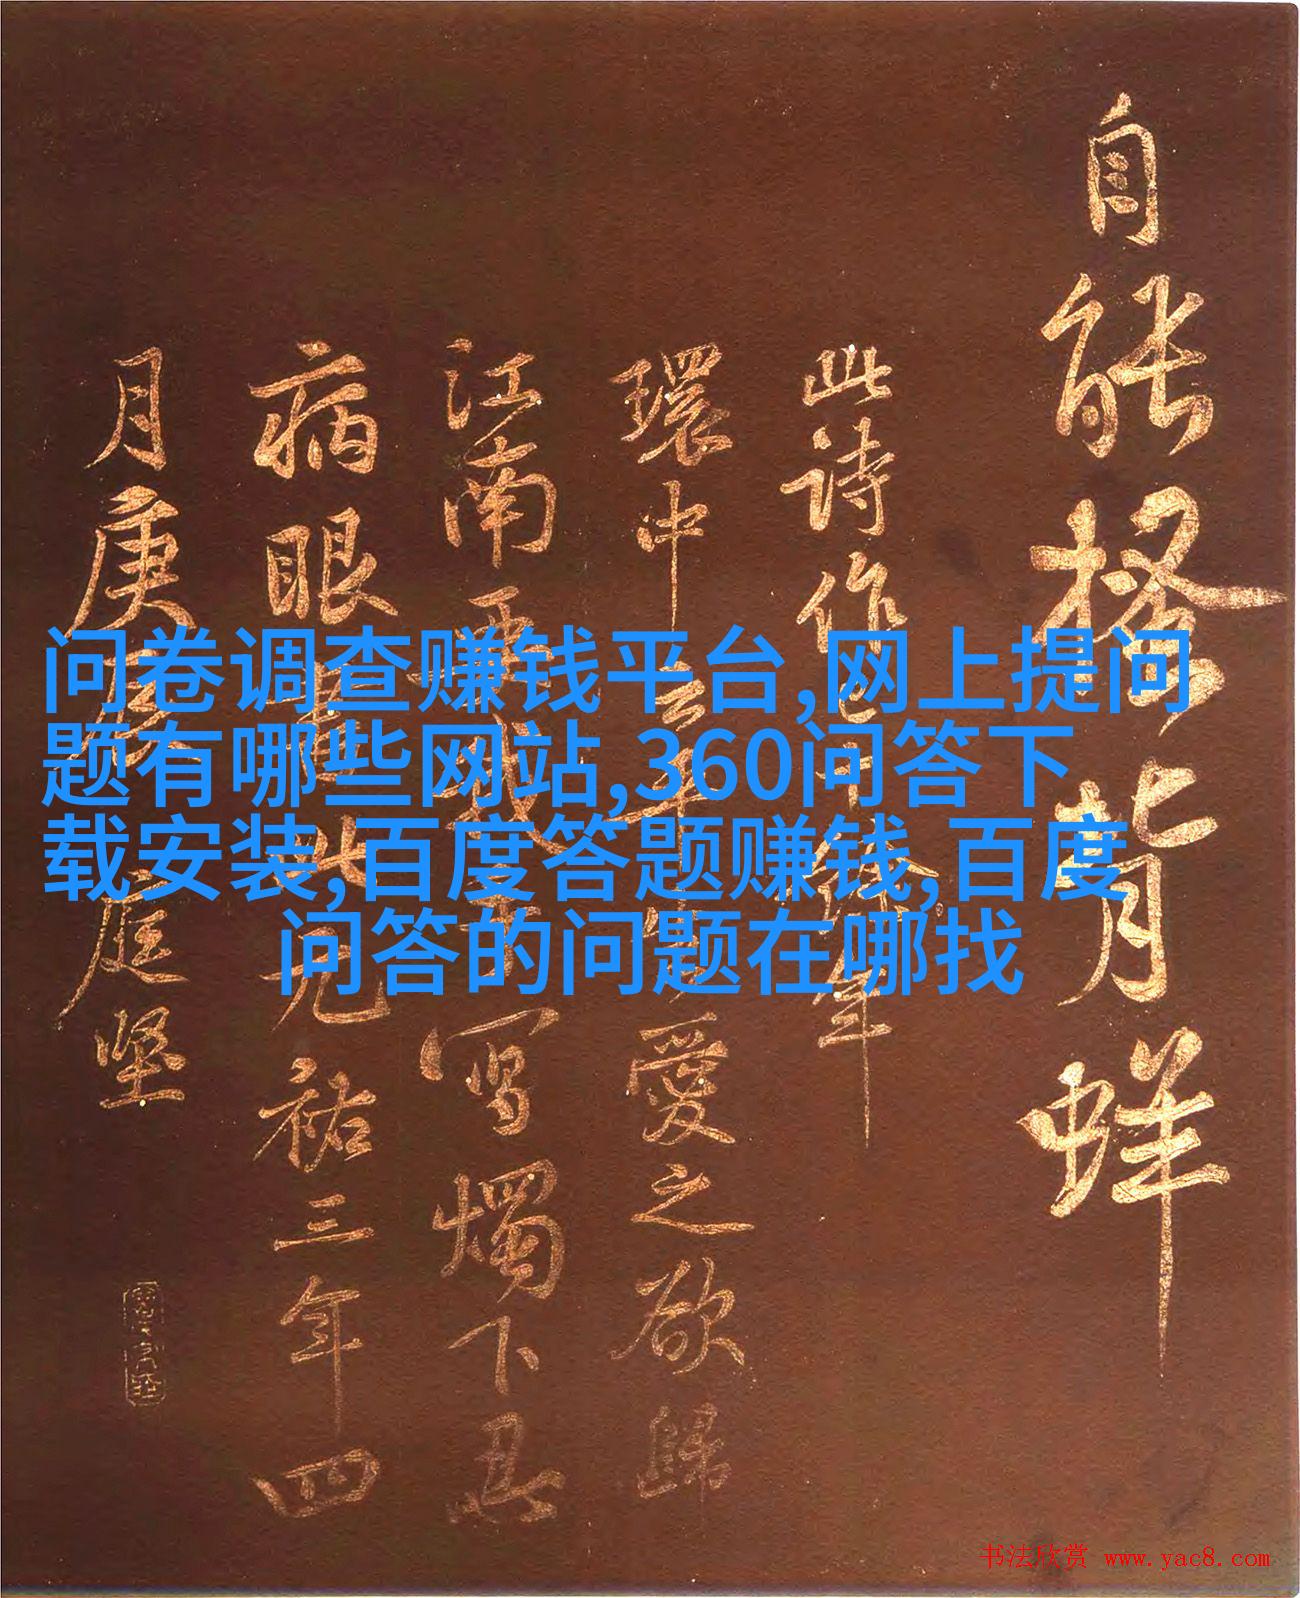 问卷调查赚钱平台,网上提问
题有哪些网站,360问答下
载安装,百度答题赚钱,百度
问答的问题在哪找
自能搔背蛘
此詩作已十餘年
環中云平生愛之欲歸
江南要我手寫燭下忍
病眼書此元祐三年四
月庚辰庭堅
书法欣赏 www.yac8.com